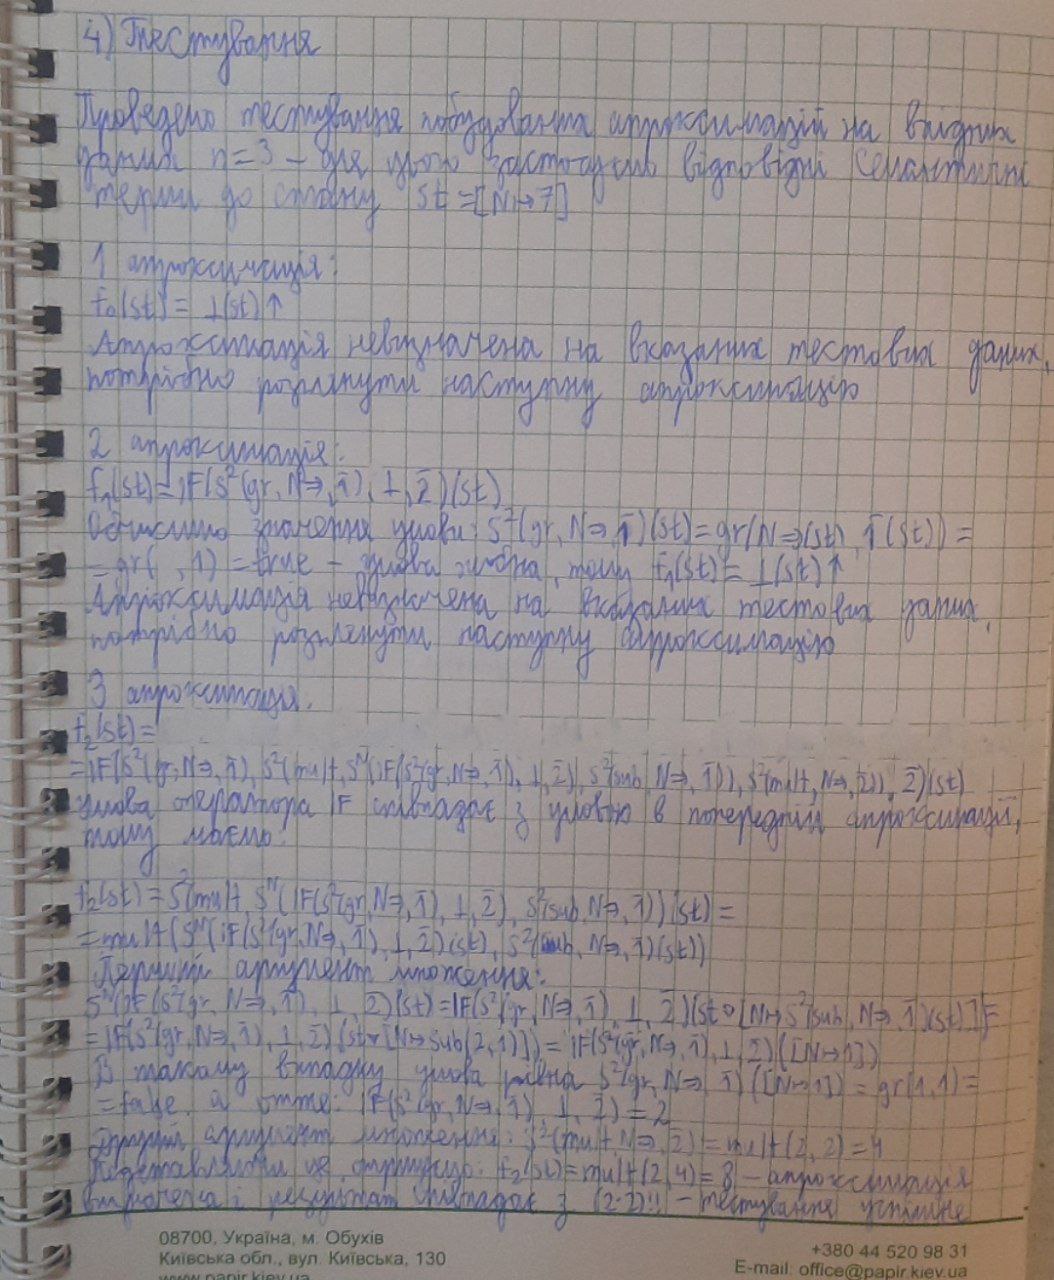 4) Тестування
Проведемо тестування побудованих апроксимацій на вхідних
даних n=3 – для цього застосуємо відповідні семантичні
терми до стану st=[N↦7]
1 апроксимація:
f₀(st) = ⊥(st)↑
Апроксимація невизначена на вказаних тестових даних,
потрібно розглянути наступну апроксимацію
2 апроксимація:
f₁(st)=IF(S²(gr, N⇒, 1̄), ⊥, 2̄)(st)
Обчислимо значення умови: S²(gr, N⇒, 1̄)(st)=gr(N⇒(st), 1̄(st))=
=gr( , 1) = true – умова хибна, тому f₁(st)= ⊥(st)↑
Апроксимація невизначена на вказаних тестових даних,
потрібно розглянути наступну апроксимацію
3 апроксимація.
f₂(st)=
=IF(S²(gr, N⇒, 1̄), S²(mult, Sᴺ(IF(S²(gr, N⇒, 1̄), ⊥, 2̄), S²(sub, N⇒, 1̄)), S²(mult, N⇒, 2̄)), 2̄)(st)
Умова оператора IF співпадає з умовою в попередній апроксимації,
тому маємо:
f₂(st) = S²(mult, Sᴺ(IF(S²(gr, N⇒, 1̄), ⊥, 2̄), S²(sub, N⇒, 1̄))(st)=
=mult(Sᴺ(IF(S²(gr, N⇒, 1̄), ⊥, 2̄)(st), S²(sub, N⇒, 1̄)(st))
Перший аргумент множення:
Sᴺ(IF(S²(gr, N⇒, 1̄), ⊥, 2̄)(st)=IF(S²(gr, N⇒, 1̄), ⊥, 2̄)(st∇[N↦S²(sub, N⇒, 1̄)(st)])=
=IF(S²(gr, N⇒, 1̄), ⊥, 2̄)(st∇[N↦sub(2,1)])=IF(S²(gr, N⇒, 1̄), ⊥, 2̄)([N↦1])
В такому випадку умова рівна S²(gr, N⇒, 1̄)([N↦1])=gr(1,1)=
=false, а отже: IF(S²(gr, N⇒, 1̄), ⊥, 2̄)=2
Другий аргумент множення: S²(mult, N⇒, 2̄)=mult(2, 2)=4
Підставляючи це, отримуємо: f₂(st)=mult(2,4)=8 – апроксимація
визначена і результат співпадає з (2·2)!! – тестування успішне
08700, Україна, м. Обухів
Київська обл., вул. Київська, 130
www.papir.kiev.ua
+380 44 520 98 31
E-mail: office@papir.kiev.ua